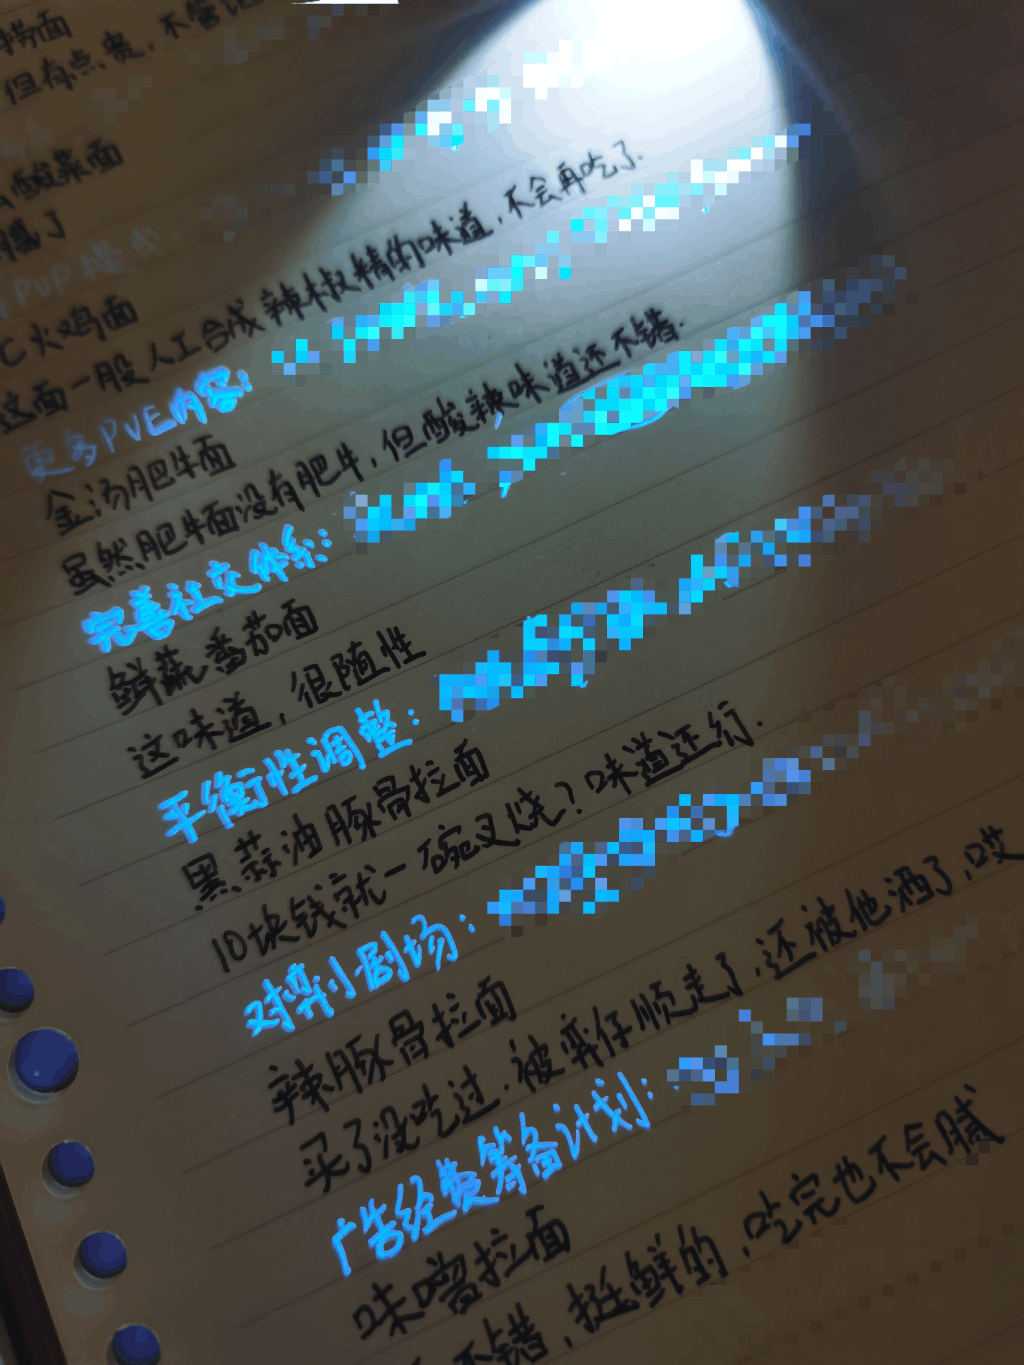 捞面
但有点贵，不管饱
酸菜面
腻了
PVP 替代
火鸡面
这面一股人工合成辣椒精的味道，不会再吃了.
更多PVE内容：
金汤肥牛面
虽然肥牛面没有肥牛，但酸辣味道还不错.
完善社交体系：
鲜蔬番茄面
这味道，很随性
平衡性调整：
黑蒜油豚骨拉面
10块钱就一碗叉烧？味道还行.
对弈小剧场：
辣豚骨拉面
买了没吃过，被弈仔顺走了，还被他洒了，哎
广告经费筹备计划：
味噌拉面
不错，挺鲜的，吃完也不会腻